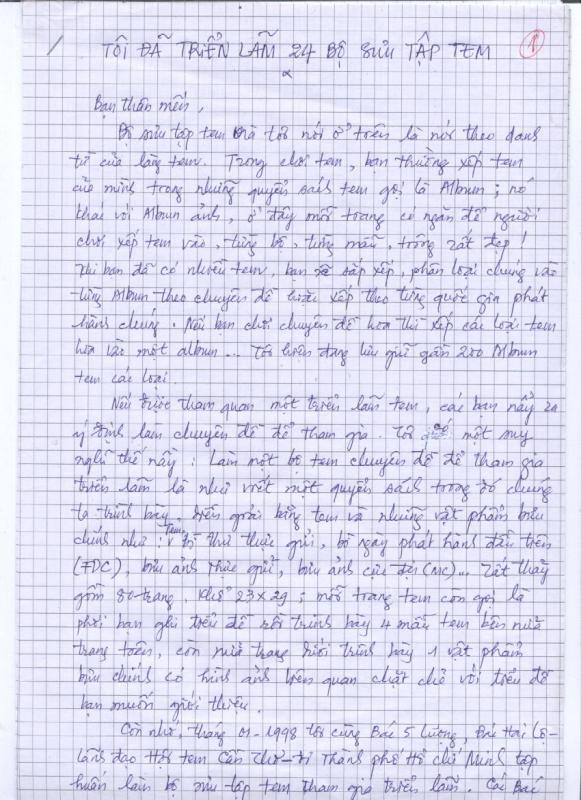 TÔI ĐÃ TRIỂN LÃM 24 BỘ SƯU TẬP TEM
1
Bạn thân mến,
Bộ sưu tập tem mà tôi nói ở trên là nói theo danh
từ của làng tem. Trong chơi tem, bạn thường xếp tem
của mình trong những quyển sách tem gọi là Album; nó
khác với Album ảnh, ở đây mỗi trang có ngăn để người
chơi xếp tem vào, từng bộ, từng mẫu, trông rất đẹp!
Khi bạn đã có nhiều tem, bạn sẽ sắp xếp, phân loại chúng vào
từng Album theo chuyên đề hoặc xếp theo từng quốc gia phát
hành chúng. Nếu bạn chơi chuyên đề hoa thì xếp các loại tem
hoa vào một album... Tôi hiện đang lưu giữ gần 200 Album
tem các loại.
Nếu được tham quan một triển lãm tem, các bạn nẩy ra
ý định làm chuyên đề để tham gia. Tôi có một suy
nghĩ thế này: Làm một bộ tem chuyên đề để tham gia
triển lãm là như viết một quyển sách trong đó chúng
ta trình bày, diễn giải bằng tem và những vật phẩm bưu
chính như: Tem, bì thư thực gửi, bì ngày phát hành đầu tiên
(FDC), bưu ảnh thực gửi, bưu ảnh cực đại (MC)... Tất thảy
gồm 80 trang, khổ 23x29; mỗi trang tem còn gọi là
phơi bạn ghi tiểu đề rồi trình bày 4 mẫu tem bên nửa
trang trên, còn nửa trang dưới trình bày 1 vật phẩm
bưu chính có hình ảnh liên quan chặt chẽ với tiểu đề
bạn muốn giới thiệu.
Còn nhớ, tháng 01-1998 tôi cùng Bác 5 Lương, Bác Hai Lộ-
lãnh đạo Hội tem Cần Thơ-đi Thành phố Hồ Chí Minh tập
huấn làm bộ sưu tập tem tham gia triển lãm. Các Bác